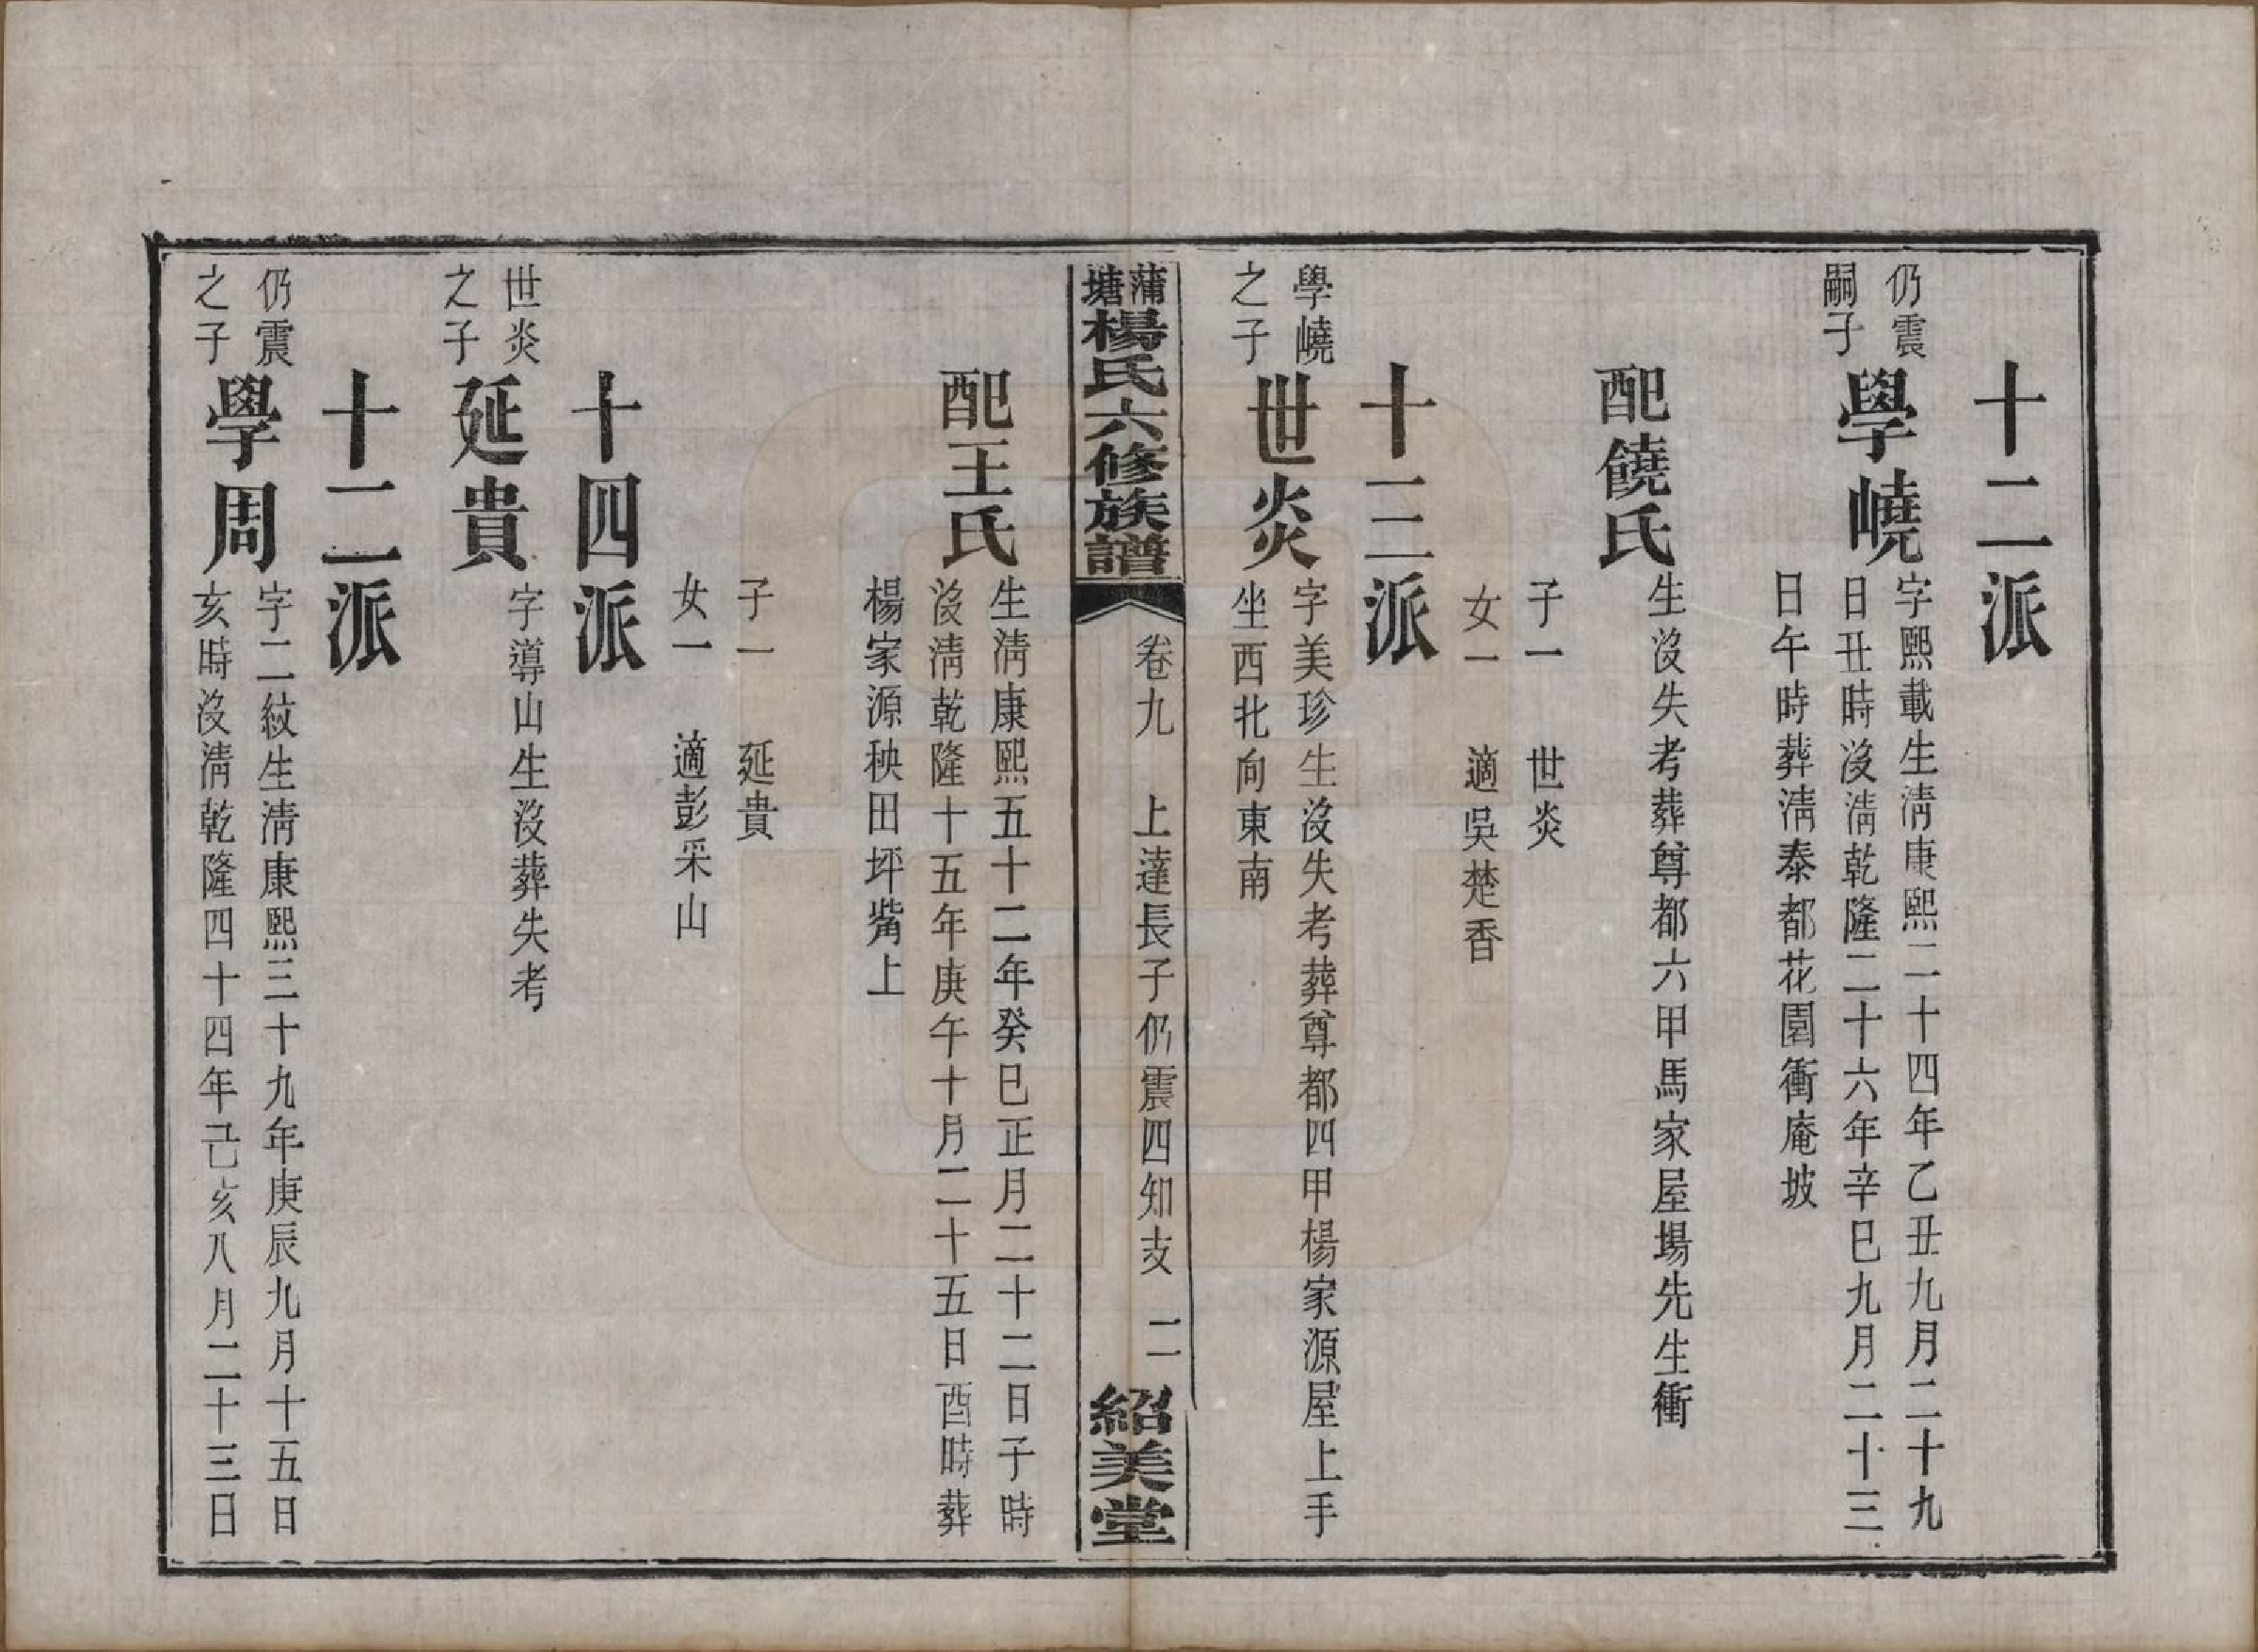 十二派
仍震
嗣子
學嶢
字熙載生淸康熙二十四年乙丑九月二十九
日丑時沒淸乾隆二十六年辛巳九月二十三
日午時葬淸泰都花園衝庵坡
配饒氏
生沒失考葬尊都六甲馬家屋場先生衝
子一 世炎
女一 適吳楚香
十三派
學嶢
之子
世炎
字美珍生沒失考葬尊都四甲楊家源屋上手
坐西北向東南
蒲塘楊氏六修族譜
卷九 上達長子仍震四知支 二
紹美堂
配王氏
生淸康熙五十二年癸巳正月二十二日子時
沒淸乾隆十五年庚午十月二十五日酉時葬
楊家源秧田坪觜上
子一 延貴
女一 適彭采山
十四派
世炎
之子
延貴
字導山生沒葬失考
十二派
仍震
之子
學周
字二紋生淸康熙三十九年庚辰九月十五日
亥時沒淸乾隆四十四年己亥八月二十三日